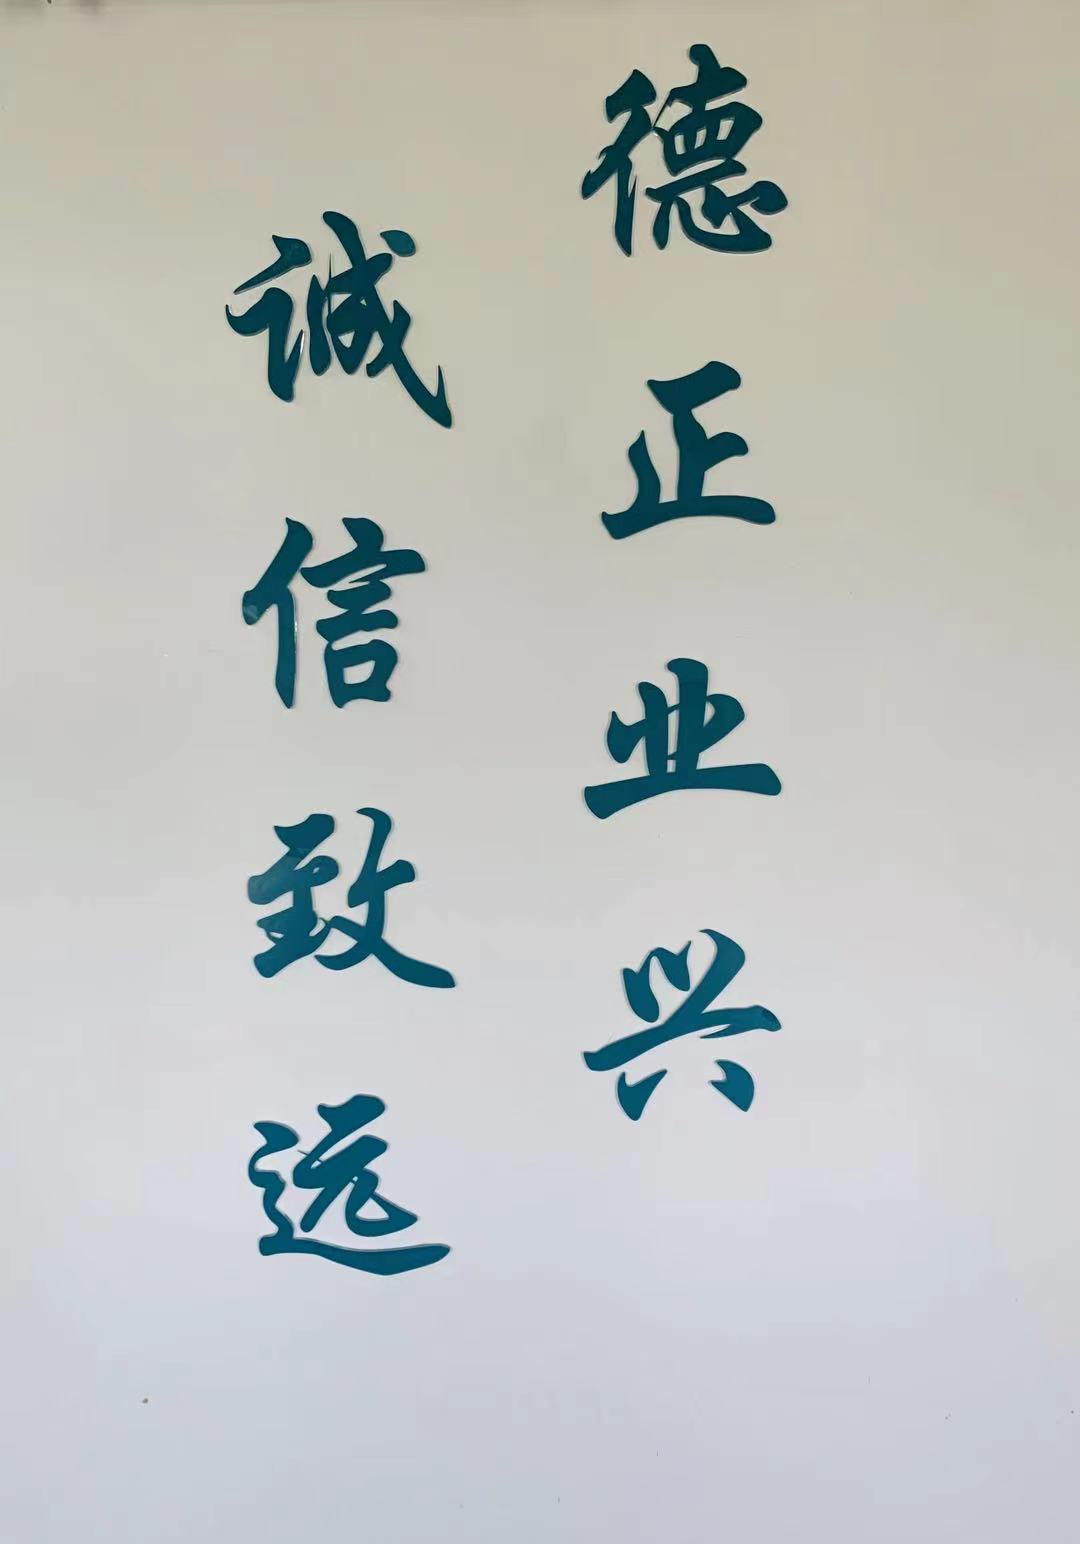 德正业兴
诚信致远